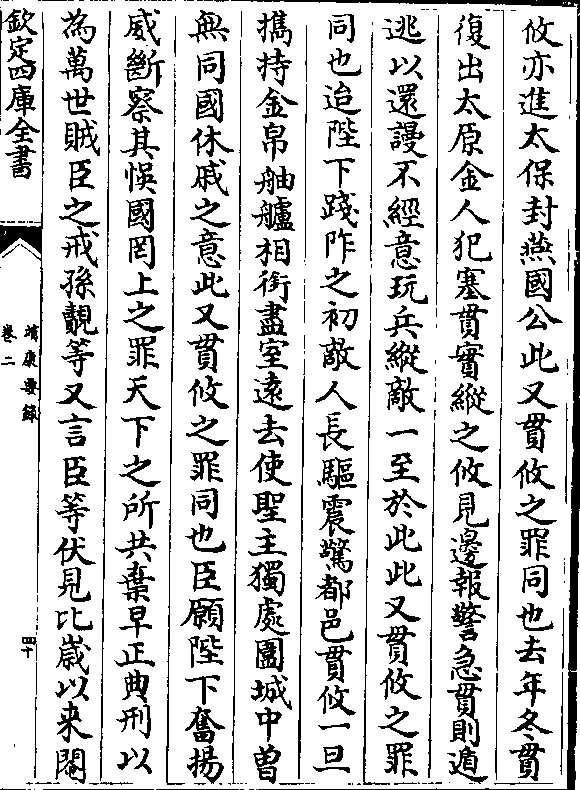 攸亦進太保封燕國公此又貫攸之罪同也去年冬貫
復出太原金人犯塞貫實縱之攸見邊報警急貫則遁
逃以還謾不經意玩兵縱敵一至於此此又貫攸之罪
同也迨陛下踐阼之初敵人長驅震驚都邑貫攸一旦
攜持金帛舳艫相銜盡室遠去使聖主獨處圍城中曽
無同國休戚之意此又貫攸之罪同也臣願陛下奮揚
威斷察其悞國罔上之罪天下之所共棄早正典刑以
為萬世賊臣之戒孫覿等又言臣等伏見比嵗以来閹
欽定四庫全書
靖康要録
卷二
四十